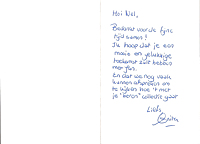 Hoi Nol,
Bedankt voor de fijne
tijd samen!
Ik hoop dat je een
mooie en gelukkige
toekomst zult hebben
met fan.
En dat we nog vaak
kunnen afspreken om
te kijken hoe 't met
je collectie gaat
Liefs,